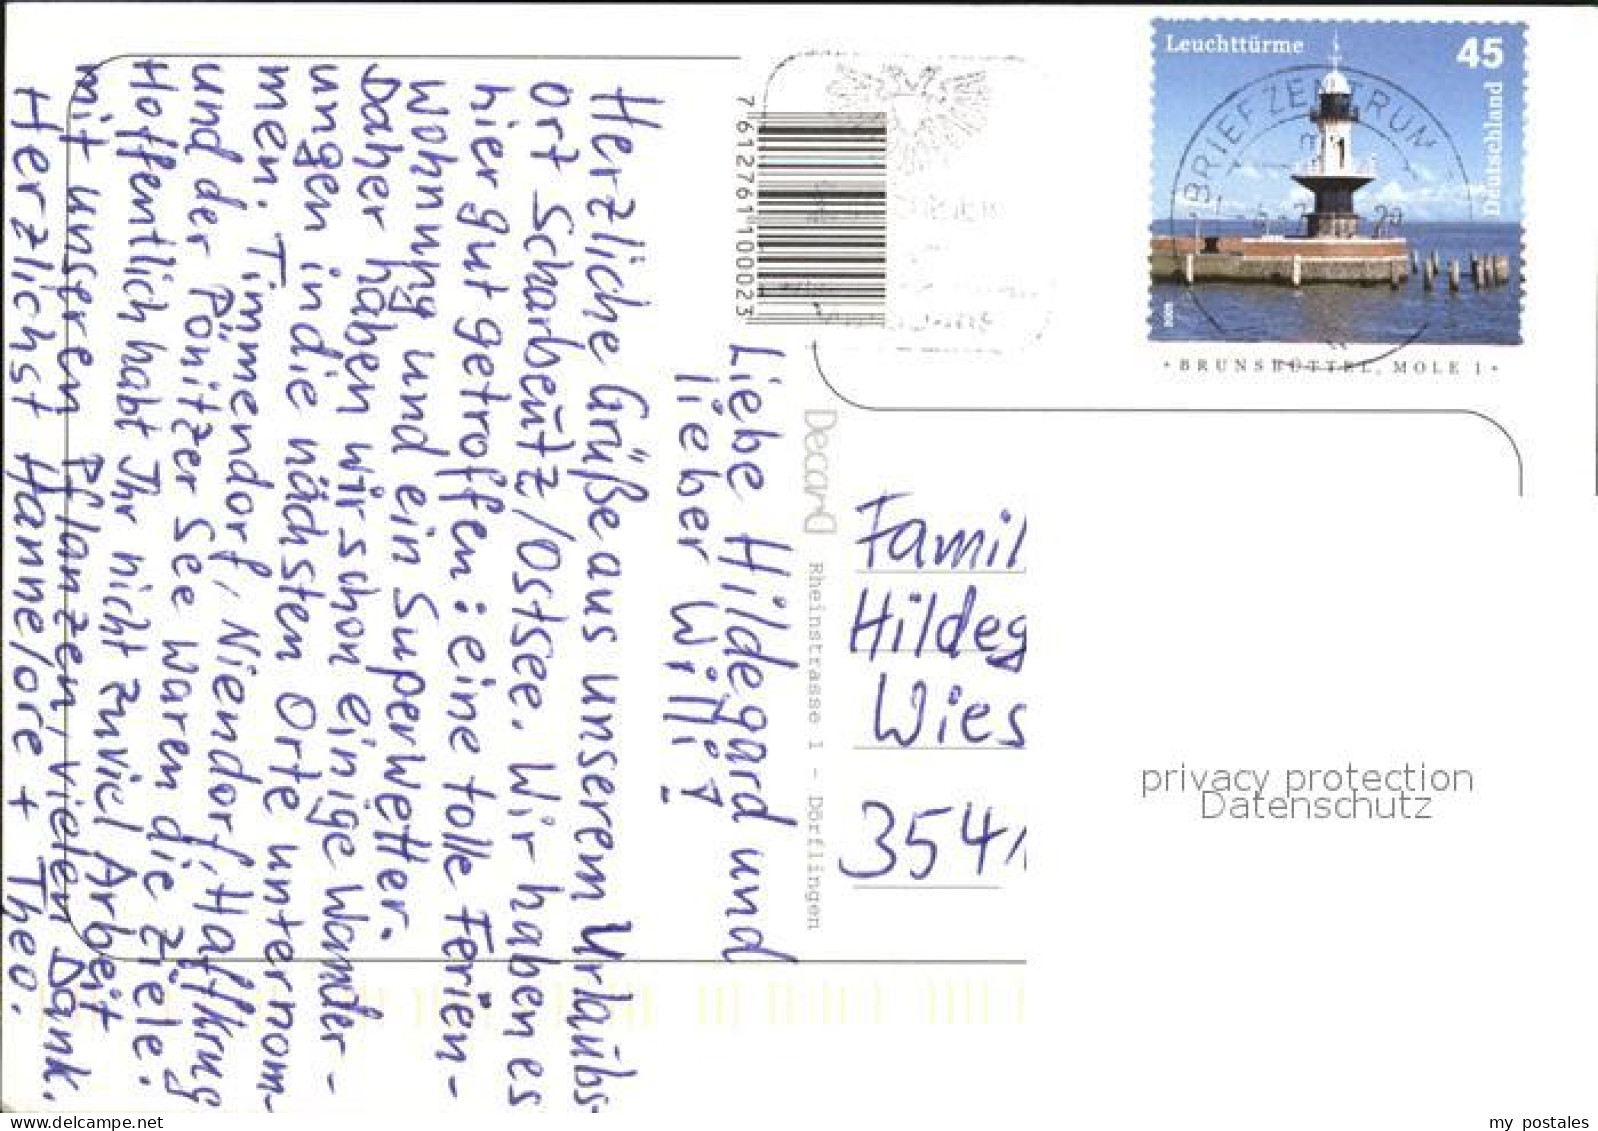 Liebe Hildegard und
lieber Willi!
Herzliche Grüße aus unserem Urlaubs-
ort Scharbeutz/Ostsee. Wir haben es
hier gut getroffen: eine tolle Ferien-
wohnung und ein Superwetter.
Daher haben wir schon einige Wander-
ungen in die nächsten Orte unternom-
men. Timmendorf, Niendorf, Haffkrug
und der Pönitzer See waren die Ziele.
Hoffentlich habt Ihr nicht zuviel Arbeit
mit unseren Pflanzen, vielen Dank.
Herzlichst Hannelore + Theo.
7 612761 100023
Decard Rheinstrasse 1 - Dörflingen
Leuchttürme 45
Deutschland
BRIEFZENTRUM
2005
• BRUNSBÜTTEL, MOLE 1 •
Famil
Hildeg
Wies
354
privacy protection
Datenschutz
my postales